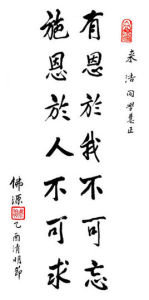 来浩同学慧正
有恩於我不可忘
施恩於人不可求
佛源
乙酉清明節